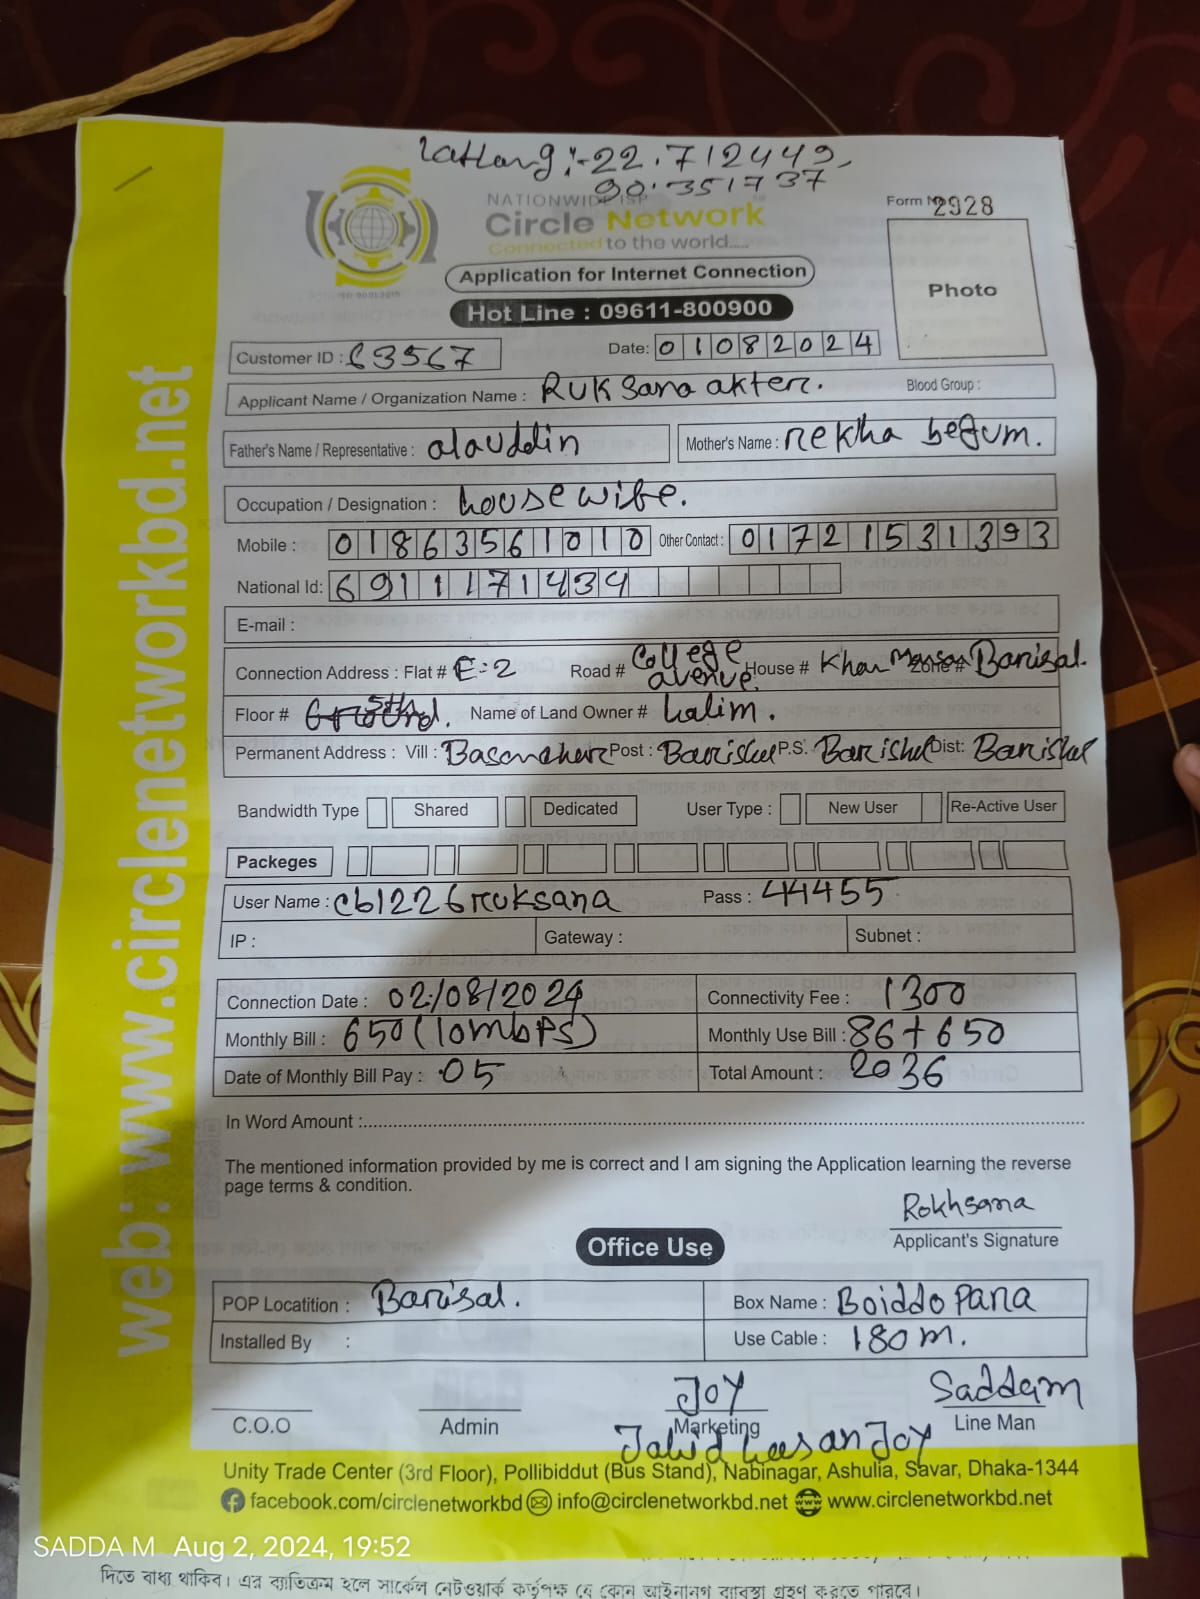 Latlang:-22.712449,
90.351737
NATIONWIDE ISP
Circle Network
Connected to the world....
Form No 2928
Photo
Application for Internet Connection
Hot Line : 09611-800900
Customer ID : 63567 Date: 01082024
Applicant Name / Organization Name : Ruksana akter. Blood Group :
Father's Name / Representative : alauddin Mother's Name : rekha begum.
Occupation / Designation : housewife.
Mobile : 01863561010 Other Contact : 01721531393
National Id: 6911171434
E-mail :
Connection Address : Flat # E-2 Road # College avenue. House # Khan Mansan Zone # Barisal.
Floor # Ground. 5th Name of Land Owner # halim.
Permanent Address : Vill : Post : Barishal P.S. Barishal Dist: Barishal
Bandwidth Type Shared Dedicated User Type : New User Re-Active User
Packeges
User Name : cb1226ruksana Pass : 44455
IP : Gateway : Subnet :
Connection Date : 02/08/2024 Connectivity Fee : 1300
Monthly Bill : 650(10mbPS) Monthly Use Bill : 86+650
Date of Monthly Bill Pay : 05 Total Amount : 2036
In Word Amount :
The mentioned information provided by me is correct and I am signing the Application learning the reverse
page terms & condition.
Rokhsana
Applicant's Signature
Office Use
POP Locatition : Barisal. Box Name : Boiddo Para
Installed By : Use Cable : 180m.
Joy Saddam
C.O.O Admin Marketing Line Man
Jahid hasan Joy
Unity Trade Center (3rd Floor), Pollibiddut (Bus Stand), Nabinagar, Ashulia, Savar, Dhaka-1344
facebook.com/circlenetworkbd info@circlenetworkbd.net www.circlenetworkbd.net
web: www.circlenetworkbd.net
SADDA M Aug 2, 2024, 19:52
দিতে বাধ্য থাকিব। এর ব্যতিক্রম হলে সার্কেল নেটওয়ার্ক কর্তৃপক্ষ যে কোন আইনানগ ব্যবস্থা গ্রহণ করতে পারবে।